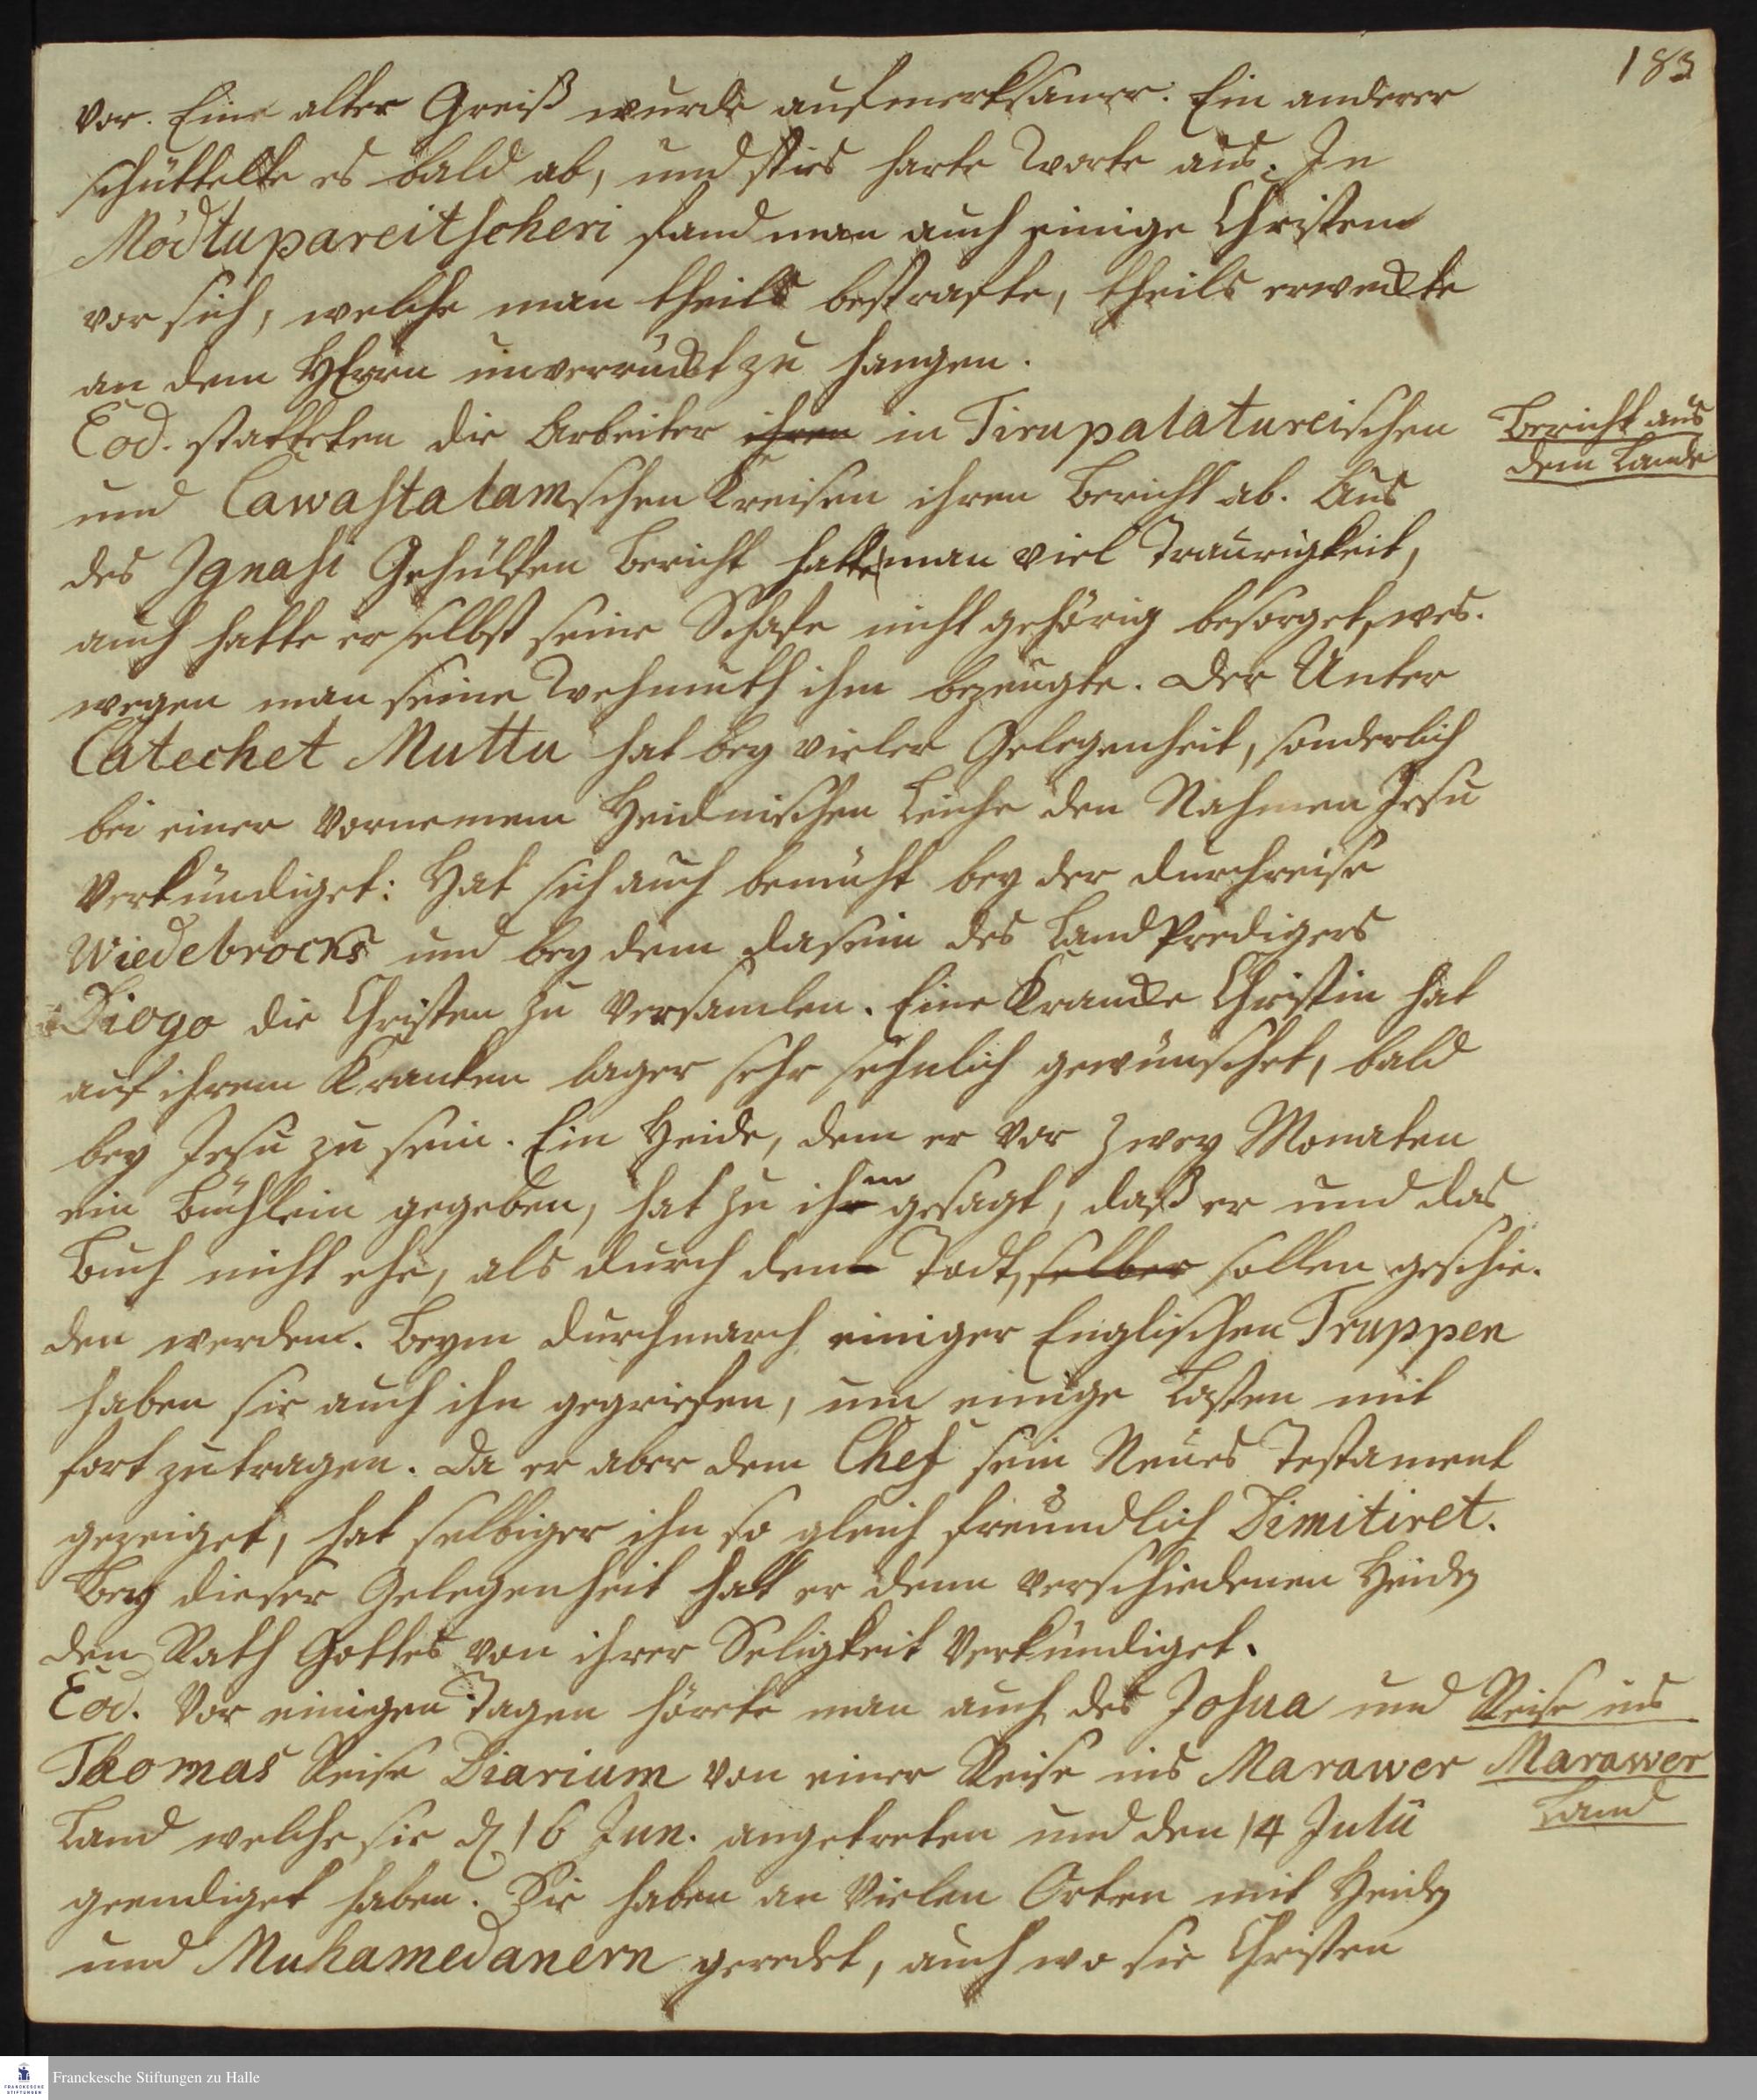 183
vor. Eine alter Greiß wurde aufmerksamer. Ein anderer
schüttelte es bald ab, und sties harte Worte aus. In
Mödtupareitscheri fand man auch einige Christen
vor sich, welche man theils bestrafte, theils erweckte
an dem HErrn unverrückt zu hangen.
Eod. statteten die Arbeiter ihren in Tirupalatureischen
Bericht aus
dem Lande
und Cawastalamschen Kreisen ihren Bericht ab. Aus
des Ignasi Gehülfen Bericht hatte man viel Traurigkeit,
auch hatte er selbst seine Schafe nicht gehörig besorget, wes-
wegen man seine Wehmuth ihm bezeugte. Der Unter
Catechet Muttu hat bey vieler Gelegenheit, sonderlich
bei einer vornemen Heidnischen Leiche den Nahmen Jesu
verkündiget: Hat sich auch bemüht bey der durchreise
Wiedebrocks und bey dem dasein des Landpredigers
Diogo die Christen zu versamlen. Eine Krancke Christin hat
auf ihrem Kranken lager sehr sehnlich gewünschet, bald
bey Jesu zu sein. Ein Heide, dem er vor zwey Monaten
ein Büchlein gegeben, hat zu ihm gesagt, daß er und das
Buch nicht ehe, als durch den Todt, selber sollen geschie-
den werden. Beym durchmarch einiger Englischen Truppen
haben sie auch ihn gegriefen, um einige Lasten mit
fort zutragen. Da er aber dem Chef sein Neues Testament
gezeiget, hat selbiger ihn so gleich freundlich Dimitiret.
Bey dieser Gelegenheit hatt er denn verschiedenen Heiden
den Rath Gottes von ihrer Seligkeit verkündiget.
Eod. Vor einigen Tagen hörete man auch des Josua und
Reise ins
Marawer
Land
Thomas Reise Diarium von einer Reise ins Marawer
Land welche sie d. 16 Jun. angetreten und den 14 Julii
geendiget haben. Sie haben an vielen Orten mit Heiden
und Muhamedanern geredet, auch wo sie Christen
FRANCKESCHE
STIFTUNGEN
Franckesche Stiftungen zu Halle